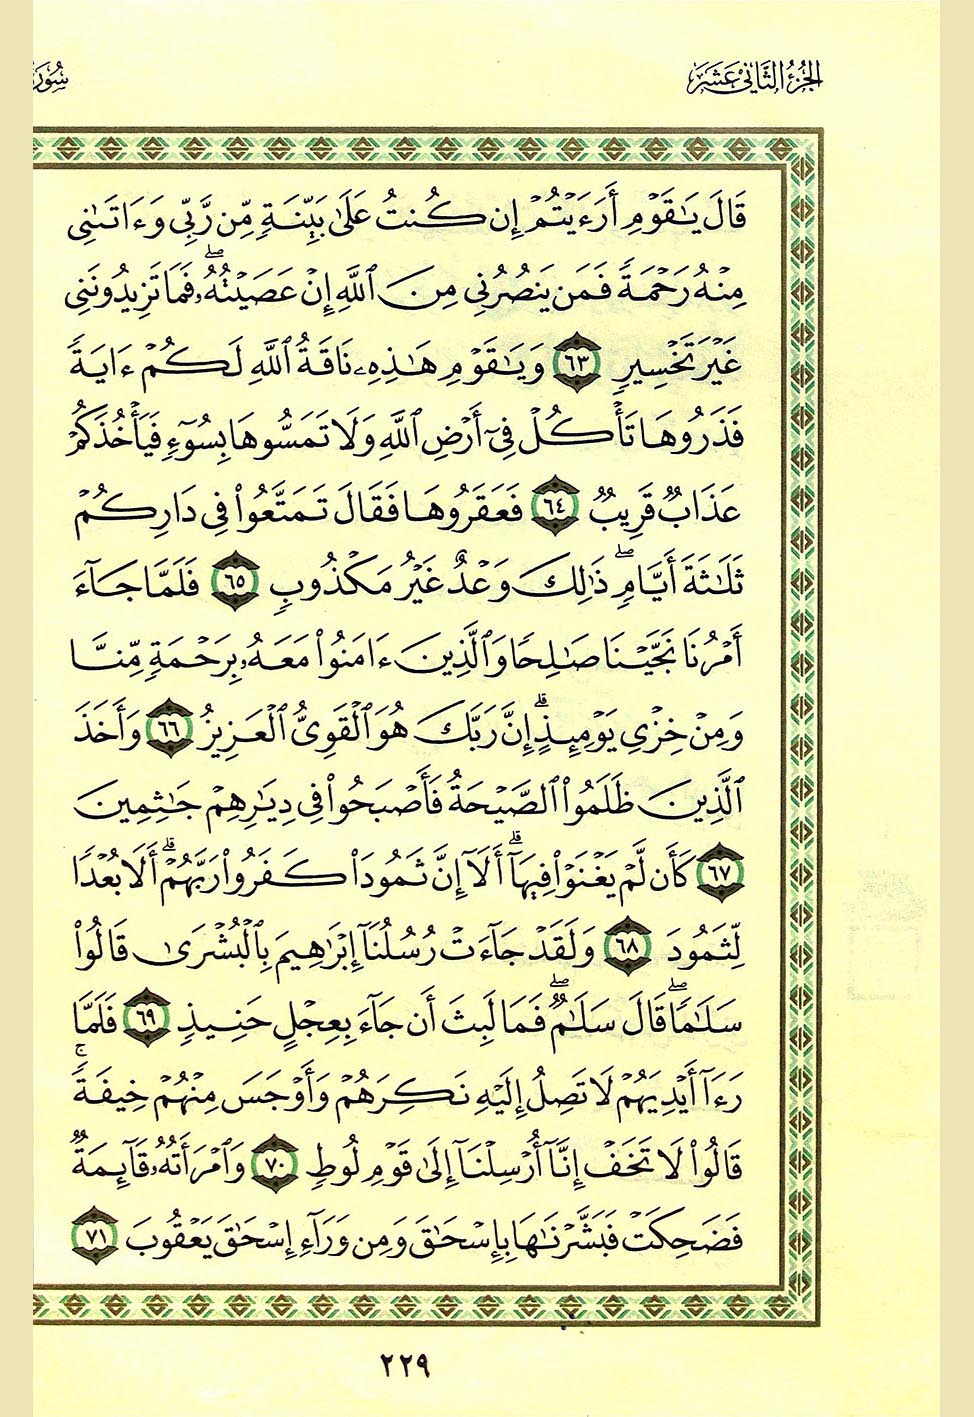 الجُزْءُ الثَّانِي عَشَرَ
قَالَ يَـٰقَوْمِ أَرَءَيْتُمْ إِن كُنتُ عَلَىٰ بَيِّنَةٍ مِّن رَّبِّى وَءَاتَىٰنِى
مِنْهُ رَحْمَةً فَمَن يَنصُرُنِى مِنَ ٱللَّهِ إِنْ عَصَيْتُهُۥ ۖ فَمَا تَزِيدُونَنِى
غَيْرَ تَخْسِيرٍ ٦٣ وَيَـٰقَوْمِ هَـٰذِهِۦ نَاقَةُ ٱللَّهِ لَكُمْ ءَايَةً
فَذَرُوهَا تَأْكُلْ فِىٓ أَرْضِ ٱللَّهِ وَلَا تَمَسُّوهَا بِسُوٓءٍ فَيَأْخُذَكُمْ
عَذَابٌ قَرِيبٌ ٦٤ فَعَقَرُوهَا فَقَالَ تَمَتَّعُوا۟ فِى دَارِكُمْ
ثَلَـٰثَةَ أَيَّامٍ ۖ ذَٰلِكَ وَعْدٌ غَيْرُ مَكْذُوبٍ ٦٥ فَلَمَّا جَآءَ
أَمْرُنَا نَجَّيْنَا صَـٰلِحًا وَٱلَّذِينَ ءَامَنُوا۟ مَعَهُۥ بِرَحْمَةٍ مِّنَّا
وَمِنْ خِزْىِ يَوْمِئِذٍ ۗ إِنَّ رَبَّكَ هُوَ ٱلْقَوِىُّ ٱلْعَزِيزُ ٦٦ وَأَخَذَ
ٱلَّذِينَ ظَلَمُوا۟ ٱلصَّيْحَةُ فَأَصْبَحُوا۟ فِى دِيَـٰرِهِمْ جَـٰثِمِينَ
٦٧ كَأَن لَّمْ يَغْنَوْا۟ فِيهَآ ۗ أَلَآ إِنَّ ثَمُودَا۟ كَفَرُوا۟ رَبَّهُمْ ۗ أَلَا بُعْدًا
لِّثَمُودَ ٦٨ وَلَقَدْ جَآءَتْ رُسُلُنَآ إِبْرَٰهِيمَ بِٱلْبُشْرَىٰ قَالُوا۟
سَلَـٰمًا ۖ قَالَ سَلَـٰمٌ ۖ فَمَا لَبِثَ أَن جَآءَ بِعِجْلٍ حَنِيذٍ ٦٩ فَلَمَّا
رَءَآ أَيْدِيَهُمْ لَا تَصِلُ إِلَيْهِ نَكِرَهُمْ وَأَوْجَسَ مِنْهُمْ خِيفَةً ۚ
قَالُوا۟ لَا تَخَفْ إِنَّآ أُرْسِلْنَآ إِلَىٰ قَوْمِ لُوطٍ ٧٠ وَٱمْرَأَتُهُۥ قَآئِمَةٌ
فَضَحِكَتْ فَبَشَّرْنَـٰهَا بِإِسْحَـٰقَ وَمِن وَرَآءِ إِسْحَـٰقَ يَعْقُوبَ ٧١
٢٢٩